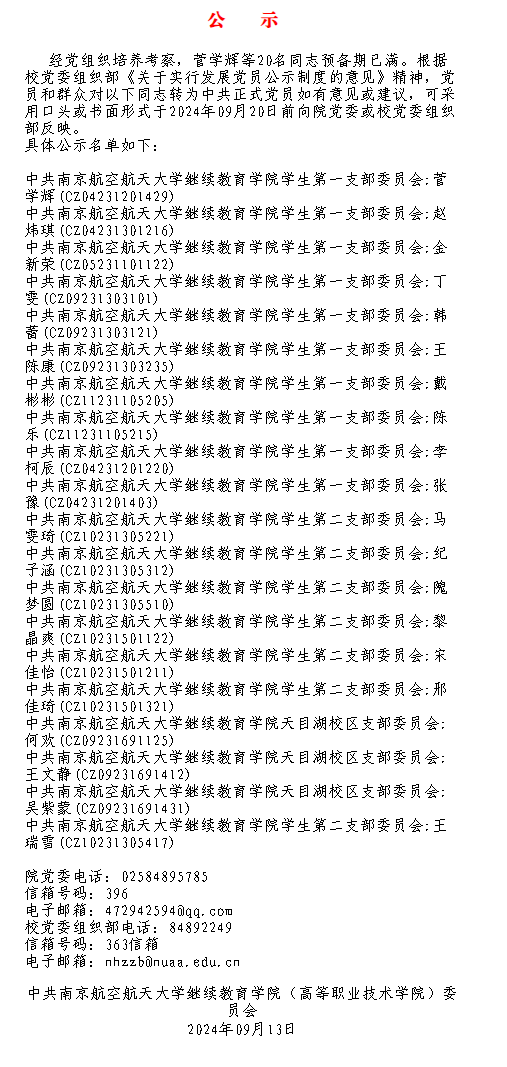 公 示
经党组织培养考察，菅学辉等20名同志预备期已满。根据
校党委组织部《关于实行发展党员公示制度的意见》精神，党
员和群众对以下同志转为中共正式党员如有意见或建议，可采
用口头或书面形式于2024年09月20日前向院党委或校党委组织
部反映。
具体公示名单如下：
中共南京航空航天大学继续教育学院学生第一支部委员会:菅
学辉(CZ04231201429)
中共南京航空航天大学继续教育学院学生第一支部委员会:赵
炜琪(CZ04231301216)
中共南京航空航天大学继续教育学院学生第一支部委员会:金
新荣(CZ05231101122)
中共南京航空航天大学继续教育学院学生第一支部委员会:丁
雯(CZ09231303101)
中共南京航空航天大学继续教育学院学生第一支部委员会:韩
蕾(CZ09231303121)
中共南京航空航天大学继续教育学院学生第一支部委员会:王
陈康(CZ09231303235)
中共南京航空航天大学继续教育学院学生第一支部委员会:戴
彬彬(CZ11231105205)
中共南京航空航天大学继续教育学院学生第一支部委员会:陈
乐(CZ11231105215)
中共南京航空航天大学继续教育学院学生第一支部委员会:李
柯辰(CZ04231201220)
中共南京航空航天大学继续教育学院学生第一支部委员会:张
豫(CZ04231201403)
中共南京航空航天大学继续教育学院学生第二支部委员会:马
雯琦(CZ10231305221)
中共南京航空航天大学继续教育学院学生第二支部委员会:纪
子涵(CZ10231305312)
中共南京航空航天大学继续教育学院学生第二支部委员会:隗
梦圆(CZ10231305510)
中共南京航空航天大学继续教育学院学生第二支部委员会:黎
晶爽(CZ10231501122)
中共南京航空航天大学继续教育学院学生第二支部委员会:宋
佳怡(CZ10231501211)
中共南京航空航天大学继续教育学院学生第二支部委员会:邢
佳琦(CZ10231501321)
中共南京航空航天大学继续教育学院天目湖校区支部委员会:
何欢(CZ09231691125)
中共南京航空航天大学继续教育学院天目湖校区支部委员会:
王文静(CZ09231691412)
中共南京航空航天大学继续教育学院天目湖校区支部委员会:
吴紫蒙(CZ09231691431)
中共南京航空航天大学继续教育学院学生第二支部委员会:王
瑞雪(CZ10231305417)
院党委电话：02584895785
信箱号码：396
电子邮箱：472942594@qq.com
校党委组织部电话：84892249
信箱号码：363信箱
电子邮箱：nhzzb@nuaa.edu.cn
中共南京航空航天大学继续教育学院（高等职业技术学院）委
员会
2024年09月13日